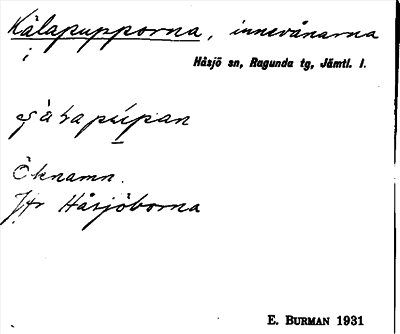 Kålapupporna, innevånarna
i
Håsjö sn, Ragunda tg, Jämtl. l.
Öknamn.
Jfr Håsjöborna
E. BURMAN 1931